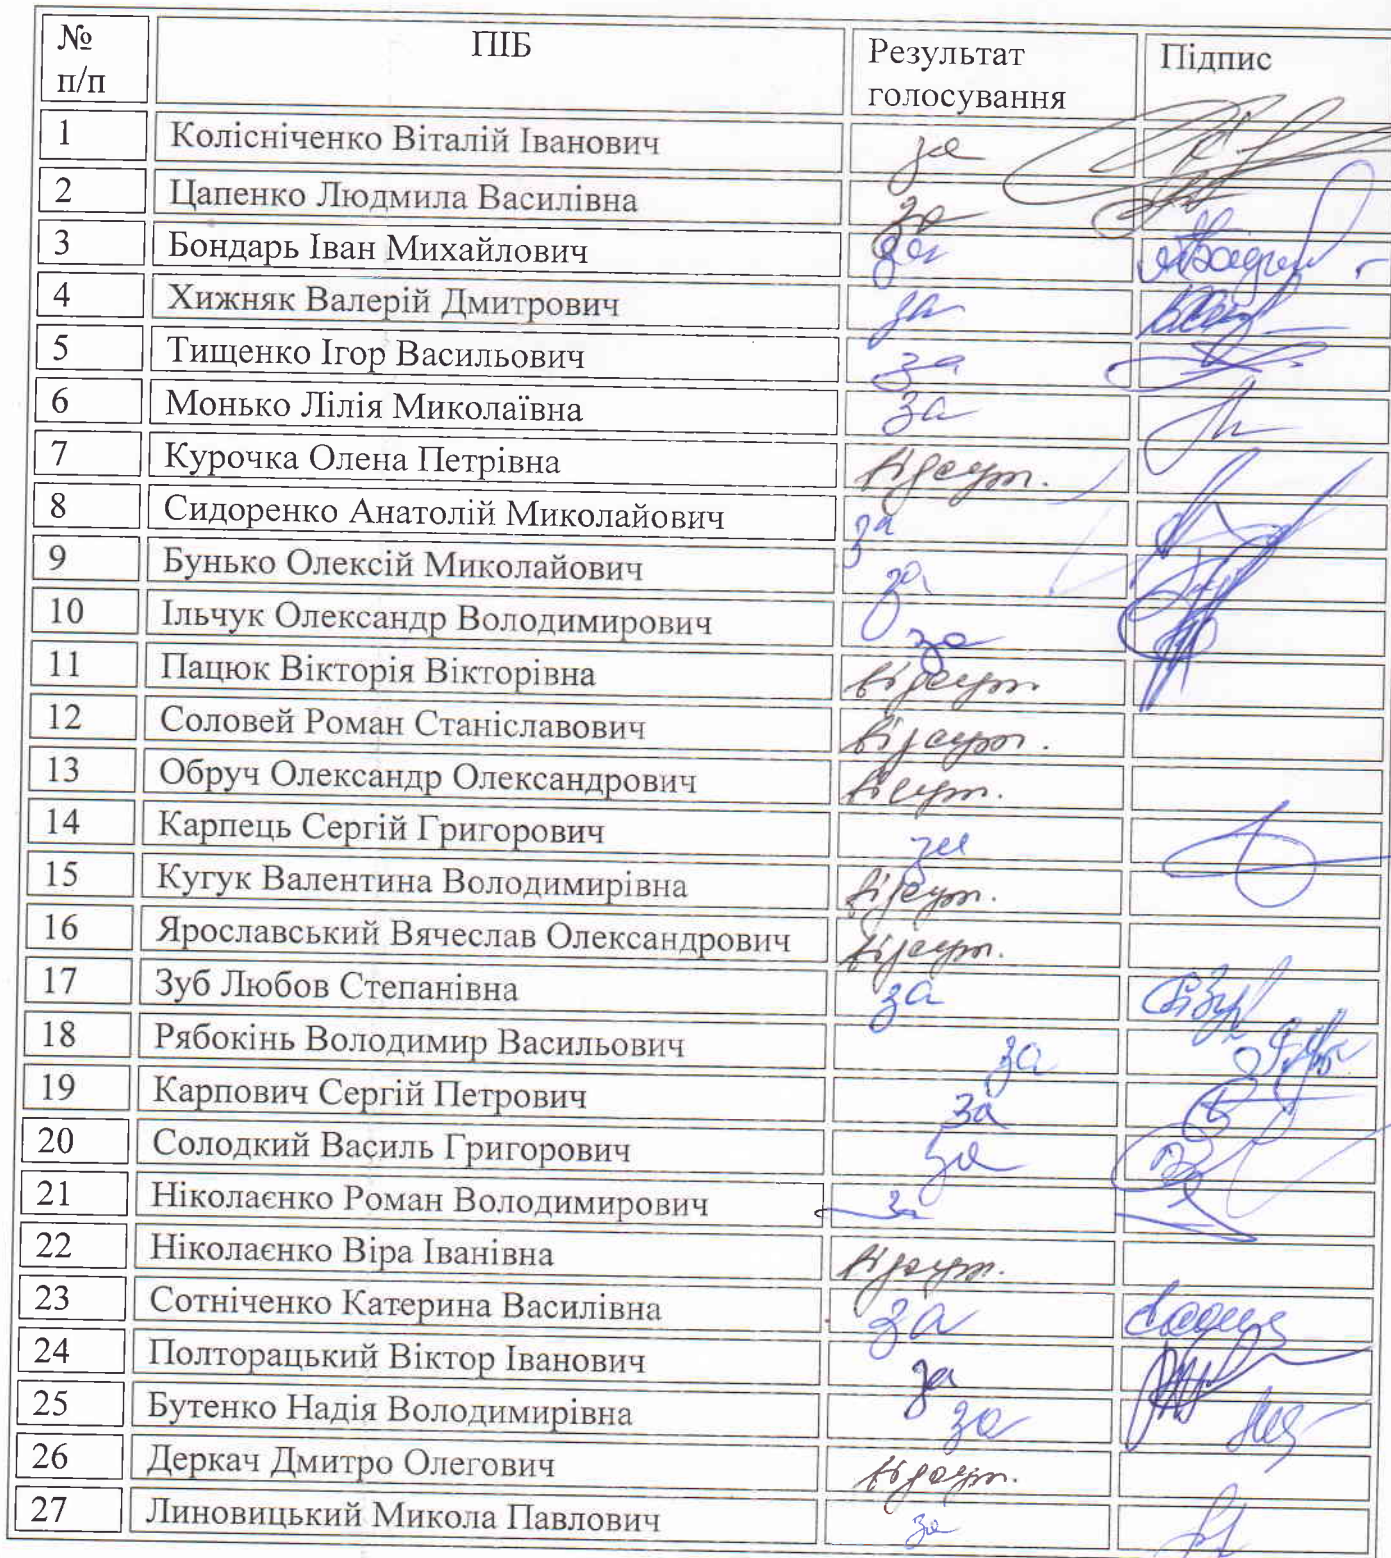 № п/п ПІБ Результат голосування Підпис
1 Колісніченко Віталій Іванович за
2 Цапенко Людмила Василівна за
3 Бондарь Іван Михайлович за
4 Хижняк Валерій Дмитрович за
5 Тищенко Ігор Васильович за
6 Монько Лілія Миколаївна за
7 Курочка Олена Петрівна відсут.
8 Сидоренко Анатолій Миколайович за
9 Бунько Олексій Миколайович за
10 Ільчук Олександр Володимирович за
11 Пацюк Вікторія Вікторівна відсут.
12 Соловей Роман Станіславович відсут.
13 Обруч Олександр Олександрович відсут.
14 Карпець Сергій Григорович за
15 Кугук Валентина Володимирівна відсут.
16 Ярославський Вячеслав Олександрович відсут.
17 Зуб Любов Степанівна за
18 Рябокінь Володимир Васильович за
19 Карпович Сергій Петрович за
20 Солодкий Василь Григорович за
21 Ніколаєнко Роман Володимирович за
22 Ніколаєнко Віра Іванівна відсут.
23 Сотніченко Катерина Василівна за
24 Полторацький Віктор Іванович за
25 Бутенко Надія Володимирівна за
26 Деркач Дмитро Олегович відсут.
27 Линовицький Микола Павлович за